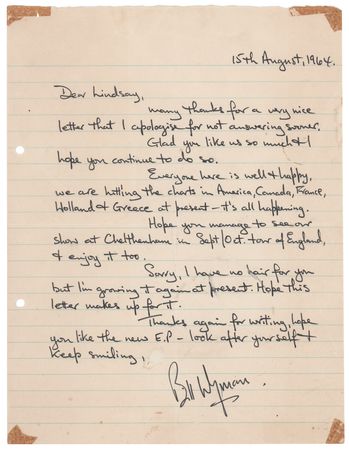 15th August, 1964.
Dear Lindsay,
many thanks for a very nice
letter that I apologise for not answering sooner.
Glad you like us so much & I
hope you continue to do so.
Everyone here is well & happy,
we are hitting the charts in America, Canada, France,
Holland & Greece at present – it's all happening.
Hope you manage to see our
show at Chelthenham in Sept/Oct. tour of England,
& enjoy it too.
Sorry, I have no hair for you
but I'm growing it again at present. Hope this
letter makes up for it.
Thanks again for writing, hope
you like the new E.P – look after yourself &
keep smiling,
Bill Wyman.